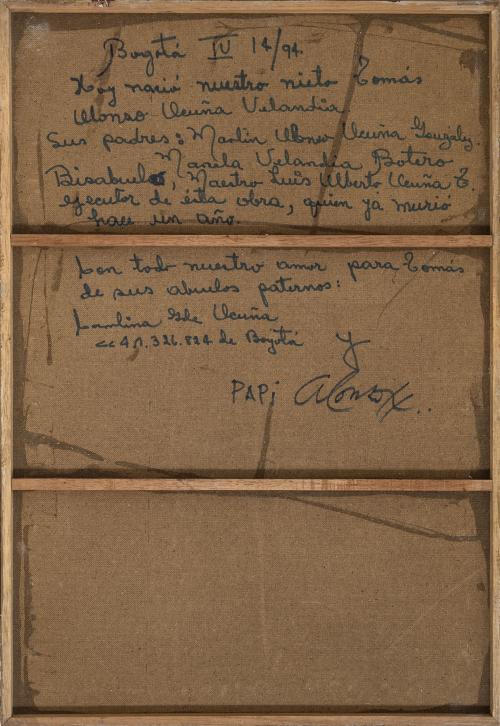 Bogotá IV 14/94.
Hoy nació nuestro nieto Tomás
Alonso Acuña Velandia.
Sus padres: Martín Alonso Acuña González.
Mariela Velandia Botero
Bisabuelo, Maestro Luis Alberto Acuña T.
ejecutor de ésta obra, quien ya murió
hace un año.
Con todo nuestro amor para Tomás
de sus abuelos paternos:
de Acuña
de Bogotá y
PAPi Alonso